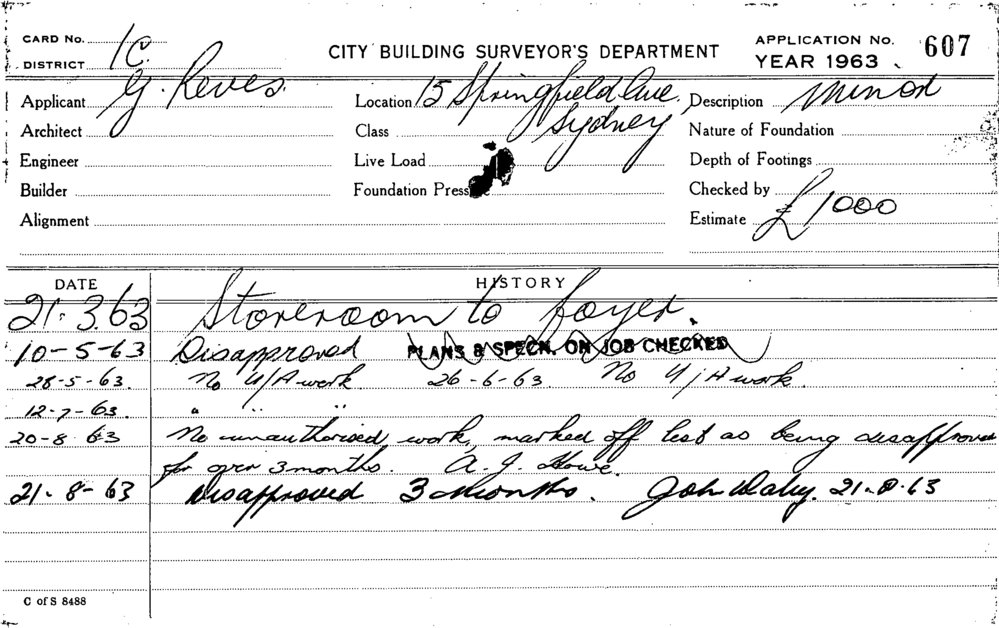 CARD No. 1C.
DISTRICT
CITY BUILDING SURVEYOR'S DEPARTMENT
APPLICATION No. 607
YEAR 1963
Applicant G. Reves.
Location 15 Springfield Ave, Sydney
Description Minor
Architect
Class
Nature of Foundation
Engineer
Live Load
Depth of Footings
Builder
Foundation Press
Checked by
Alignment
Estimate £1000
DATE HISTORY
21.3.63 Storeroom to foyer.
10-5-63 Disapproved PLANS & SPECN. ON JOB CHECKED
28-5-63. No U/A work 26-6-63. No U/A work.
12-7-63. " " "
20-8 63 No unauthorised work, marked off list as being disapproved
for over 3 months. A. J. Howe.
21-8-63 Disapproved 3 Months. 21.8.63
C of S 8488